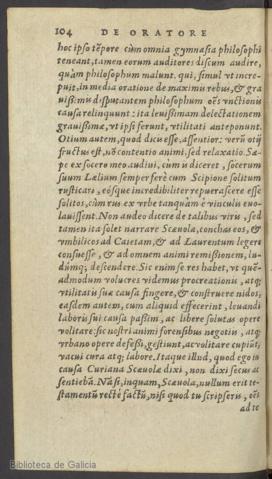 104 DE ORATORE
hoc ipso tẽpore cùm omnia gymnasia philosophi
teneant, tamen eorum auditores discum audire,
quàm philosophum malunt. qui, simul vt incre-
puit, in media oratione de maximis rebus, & gra
uißimis disputantem philosophum oẽs vnctionis
causa relinquunt: ita leuißimam delectationem
grauißimæ, vt ipsi ferunt, vtilitati anteponunt.
Otium autem, quod dicis esse, assentior: verũ otij
fructus est, nõ contentio animi, sed relaxatio. Sæ-
pe ex socero meo audiui, cùm is diceret, socerum
suum Lælium semper ferè cum Scipione solitum
rusticari, eósque incredibiliter repuerascere esse
solitos, cùm rus ex vrbe tanquàm è vinculis euo-
lauissent. Non audeo dicere de talibus viris, sed
tamen ita solet narrare Scæuola, conchas eos, &
vmbilicos ad Caietam, & ad Laurentum legere
consuesse, & ad omnem animi remißionem, lu-
dúmq; descendere. Sic enim se res habet, vt quẽ-
admodum volucres videmus procreationis, atq;
vtilitatis suæ causa fingere, & construere nidos,
easdem autem, cum aliquid effecerint, leuandi
laboris sui causa paßim, ac libere solutas opere
volitare: sic nostri animi forensibus negotiis, atq;
vrbano opere defeßi, gestiunt, ac volitare cupiũt,
vacui cura atq; labore. Itaque illud, quod ego in
causa Curiana Scæuolæ dixi, non dixi secus ac
sentiebã. Nã si, inquam, Scæuola, nullum erit te-
stamentũ rectè factũ, nisi quod tu scripseris, oẽs
ad te
Biblioteca de Galicia